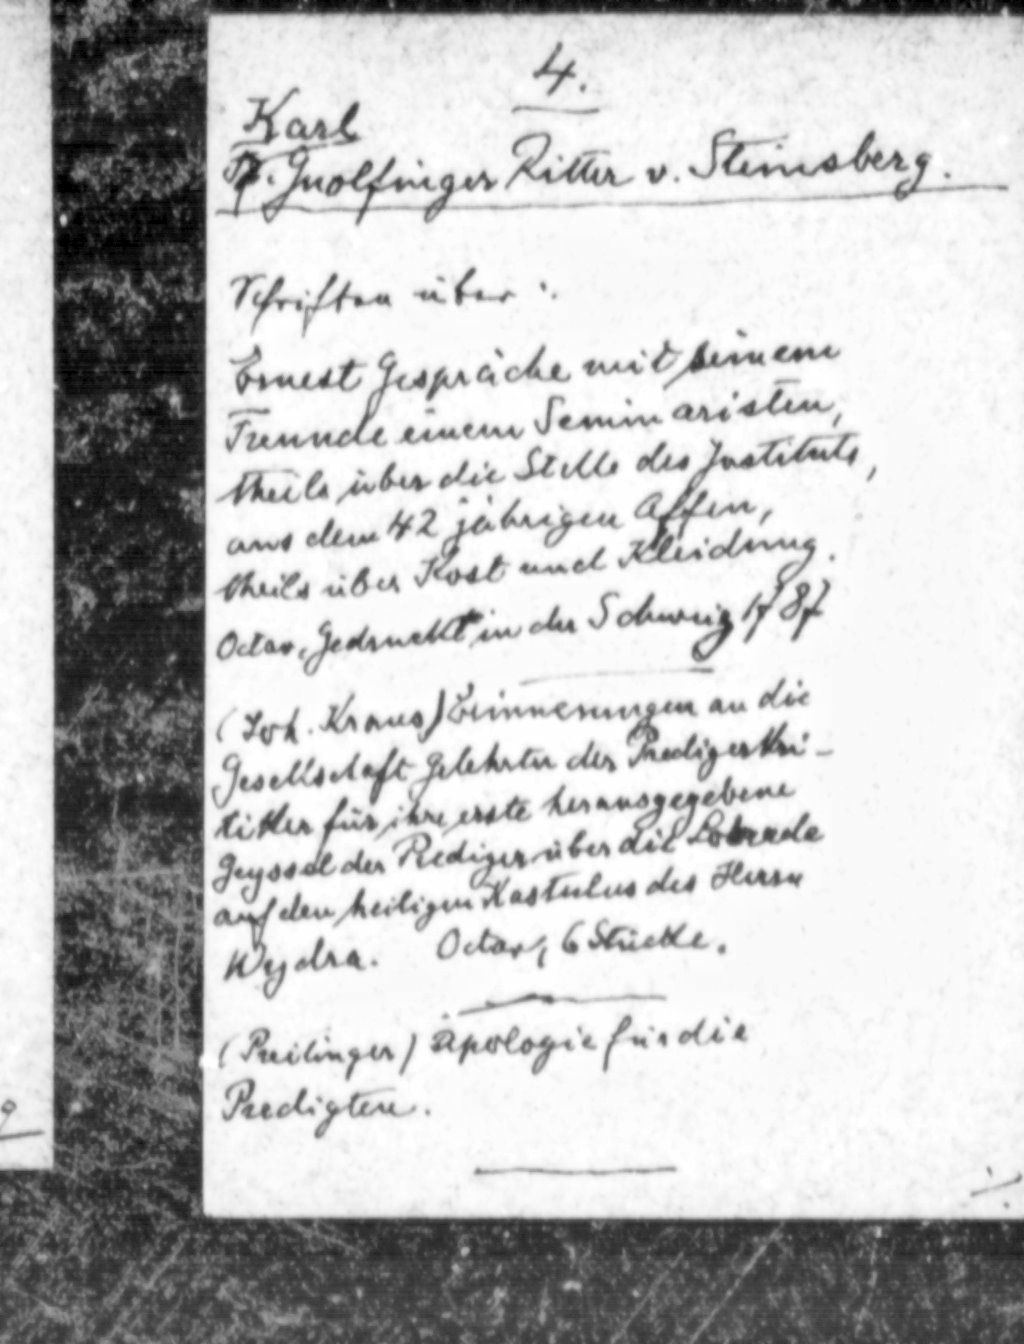 4.
Karl
Guolfinger Ritter v. Steinsberg.
Schriften über:
Ernest Gespräche mit seinem
Freunde einem Seminaristen,
theils über die Stelle des Instituts,
aus dem 42 jährigen Affen,
theils über Kost und Kleidung.
Octav, Gedruckt in der Schweiz 1787
(Joh. Kraus) Erinnerungen an die
Gesellschaft Gelehrter der Predigerkri-
tiker für ihre erste herausgegebene
Geyssel der Prediger über die Lobrede
auf den heiligen Kastulus des Herrn
Wydra. Octav, 6 Stücke.
(Preilinger) Apologie für die
Predigten.
./.